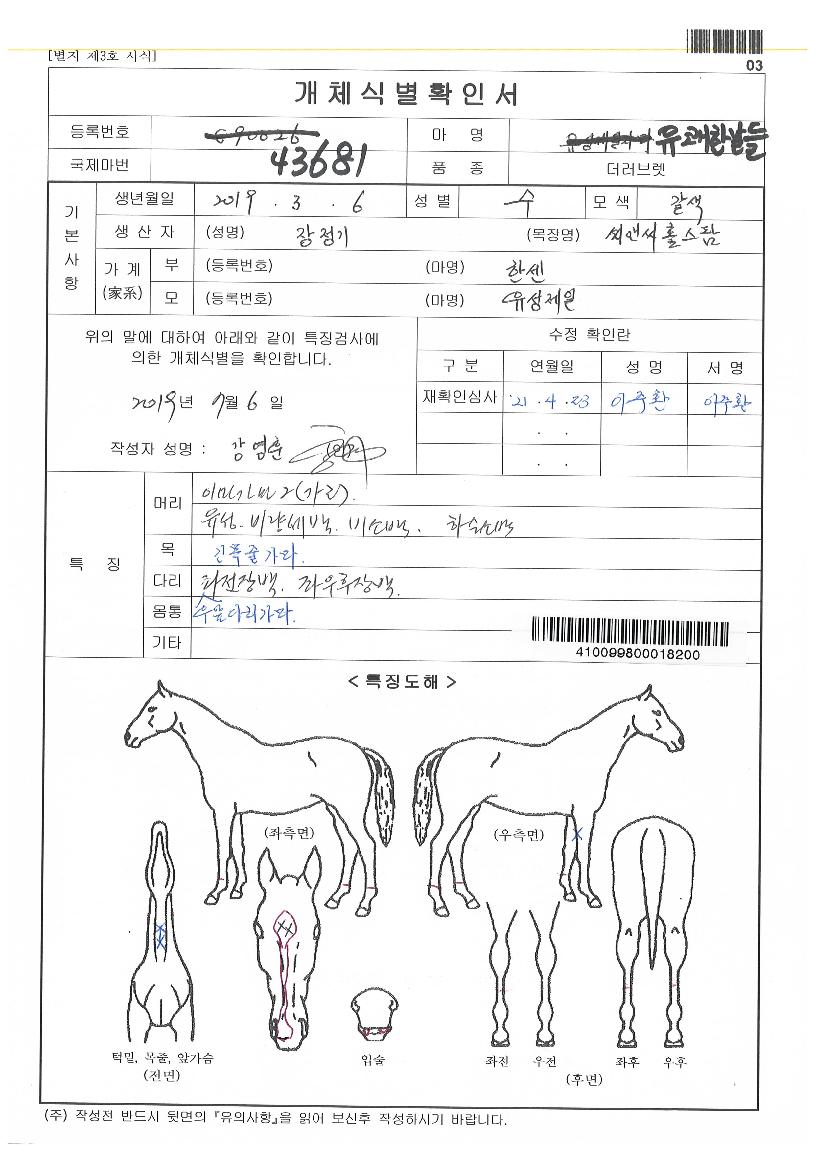 [별지 제3호 서식]
03
개체식별확인서
등록번호 마 명 유쾌한발들
국제마번 43681 품 종 더러브렛
기본사항
생년월일 2019 . 3 . 6 성 별 수 모 색 갈색
생 산 자 (성명) 장정기 (목장명) 씨앤씨홀스팜
가 계 (家系) 부 (등록번호) (마명) 한센
모 (등록번호) (마명) 유성제일
위의 말에 대하여 아래와 같이 특징검사에
의한 개체식별을 확인합니다.
2019년 7월 6 일
작성자 성명 : 강영훈
수정 확인란
구 분 연월일 성 명 서 명
재확인심사 '21 . 4 . 23 이주환 이주환
. .
. .
특 징
머리 이마가마2(가로).
유성. 비량세백. 비소백. 하순소백
목 긴목줄가마.
다리 좌전장백. 좌우후장백.
몸통 우앞다리가마.
기타
410099800018200
< 특징도해 >
(좌측면) (우측면)
턱밑, 목줄, 앞가슴 입술 좌전 우전 좌후 우후
(전면) (후면)
(주) 작성전 반드시 뒷면의 『유의사항』을 읽어 보신후 작성하시기 바랍니다.